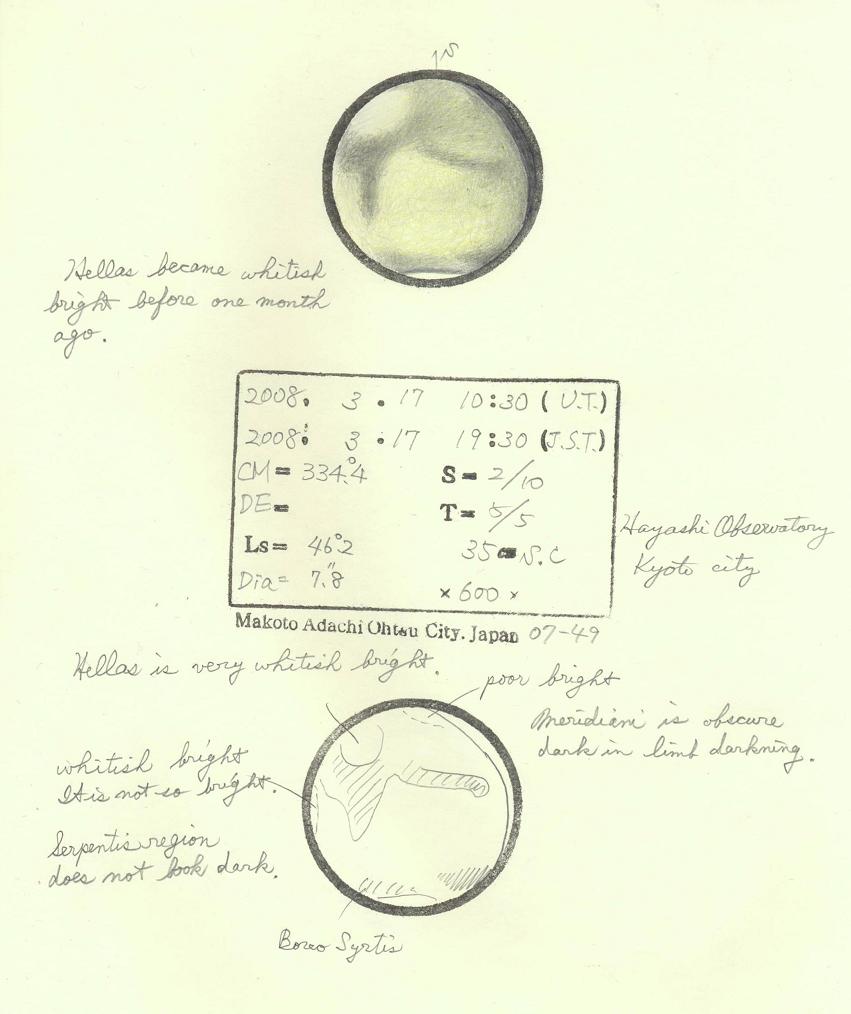 S
Hellas became whitish
bright before one month
ago.
2008. 3. 17 10:30 (U.T.)
2008: 3.17 19:30 (J.S.T.)
CM= 334.°4 S= 2/10
DE= T= 5/5
Ls= 46.°2 35cm S.C
Dia= 7."8 ×600×
Hayashi Observatory
Kyoto city
Makoto Adachi Ohtsu City. Japan 07-49
Hellas is very whitish bright.
poor bright
Meridiani is obscure
dark in limb darkning.
whitish bright
It is not so bright.
Serpentis region
does not look dark.
Boreo Syrtis